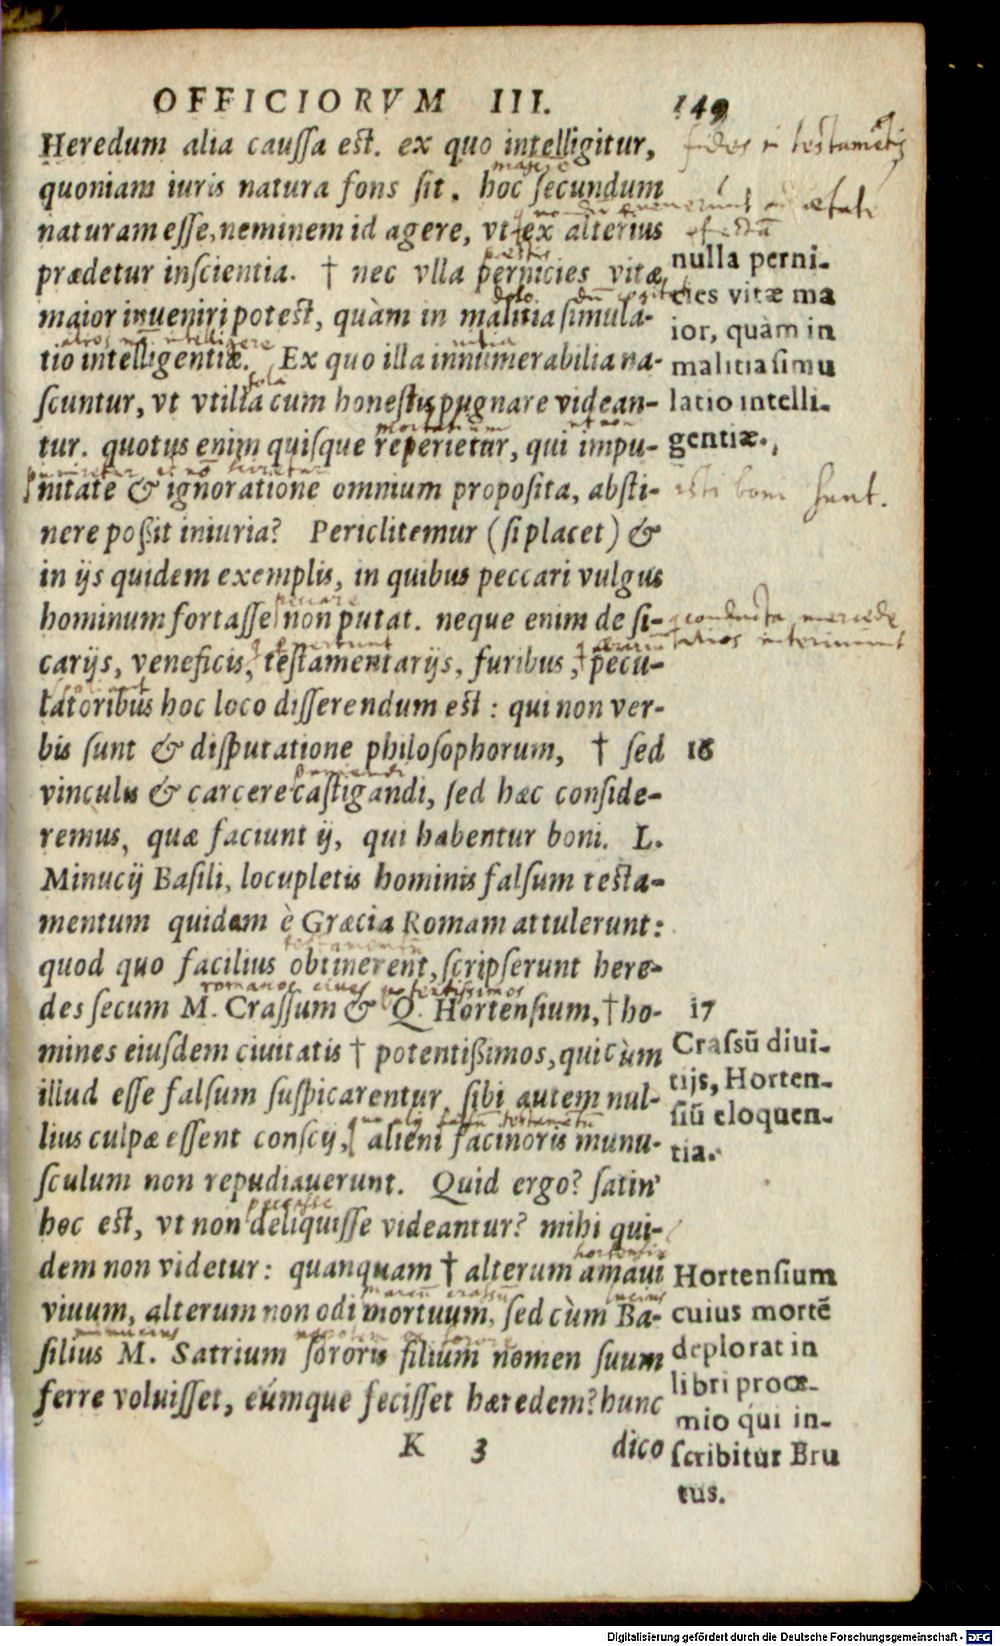 OFFICIORVM III. 149
Heredum alia caussa est. ex quo intelligitur,
quoniam iuris natura fons sit. hoc secundum
naturam esse, neminem id agere, vt ex alterius
prædetur inscientia. † nec vlla pernicies vitæ
maior inueniri potest, quàm in malitia simula-
tio intelligentiæ. Ex quo illa innumerabilia na-
scuntur, vt vtilia cum honestis pugnare videan-
tur. quotus enim quisque reperietur, qui impu-
nitate & ignoratione omnium proposita, absti-
nere poßit iniuria? Periclitemur (si placet) &
in ijs quidem exemplis, in quibus peccari vulgus
hominum fortasse non putat. neque enim de si-
carijs, veneficis, testamentarijs, furibus, pecu-
latoribus hoc loco disserendum est: qui non ver-
bis sunt & disputatione philosophorum, † sed
vinculis & carcere castigandi, sed hæc conside-
remus, quæ faciunt ij, qui habentur boni. L.
Minucij Basili, locupletis hominis falsum testa-
mentum quidam è Græcia Romam attulerunt:
quod quo facilius obtinerent, scripserunt here-
des secum M. Crassum & Q. Hortensium, † ho-
mines eiusdem ciuitatis † potentißimos, qui cùm
illud esse falsum suspicarentur, sibi autem nul-
lius culpæ essent conscij, alieni facinoris munu-
sculum non repudiauerunt. Quid ergo? satin'
hoc est, vt non deliquisse videantur? mihi qui-
dem non videtur: quanquam † alterum amaui
viuum, alterum non odi mortuum, sed cùm Ba-
silius M. Satrium sororis filium nomen suum
ferre voluisset, eúmque fecisset hæredem? hunc
K 3 dico
fides in testamētis
nulla perni-
cies vitæ ma
ior, quàm in
malitia simu
latio intelli-
gentiæ.
isti boni sunt.
conducta mercede
16
17
Crassū diui-
tijs, Horten-
siū eloquen-
tia.
Hortensium
cuius mortē
deplorat in
libri proœ-
mio qui in-
scribitur Bru
tus.
peccare
romanos ciues potentissimos
Digitalisierung gefördert durch die Deutsche Forschungsgemeinschaft - DFG